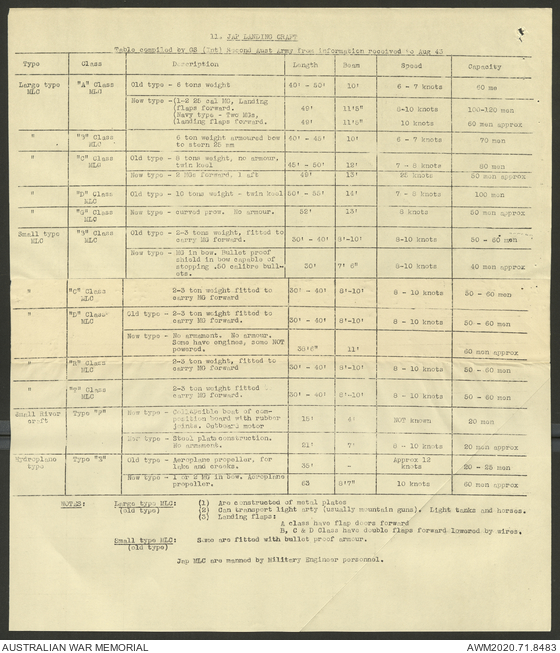 11. JAP LANDING CRAFT
Table compiled by GS (Int) Second Aust Army from information received to Aug 43
Type Class Description Length Beam Speed Capacity
Large type MLC "A" Class MLC Old type - 6 tons weight 40' - 50' 10' 6 - 7 knots 60 me
New type - (1-2 25 cal MG, Landing
(flaps forward. 49' 11'5" 8-10 knots 100-120 men
(Navy type - Two MGs,
(landing flaps forward. 48' 10 knots 60 men approx
" Class MLC 6 ton weight armoured bow
to stern 25 mm 40' - 45' 10' 6 - 7 knots 70 men
" "C" Class MLC Old type - 8 tons weight, no armour,
twin keel 45' - 50' 12' 7 - 8 knots
New type - 2 MGs forward, 1 aft 49' 13' 50 men approx
" "D" Class MLC Old type - 10 tons weight - twin keel 50' - 55' 14' 7 - 8 knots 100 men
" "G" Class MLC New type - curved prow. No armour. 52' 13' 8 knots 50 men approx
Small type MLC Class MLC Old type - 2-3 tons weight, fitted to
carry MG forward. 30' - 40' 8'-10' 8-10 knots 50 - 60 men
New type - MG in bow. Bullet proof
shield in bow capable of
stopping .50 calibre bull-
ets. 50' 7' 6" 8-10 knots 40 men approx
" "C" Class MLC 2-3 ton weight fitted to
carry MG forward 30' - 40' 8'-10' 8 - 10 knots 50 - 60 men
" "D" Class MLC Old type - 2-3 ton weight fitted to
carry MG forward. 30' - 40' 8'-10' 8 - 10 knots 50 - 60 men
New type - No armament. No armour.
Some have engines, some NOT
powered. 11' 60 men approx
" Class MLC 2-3 ton weight, fitted to
carry MG forward 30' - 40' 8'-10' 8 - 10 knots 50 - 60 men
" Class MLC 2-3 ton weight fitted
carry MG forward. 30' - 40' 8'-10' 8 - 10 knots 50 - 60 men
Small River craft Type New type - Collapsible boat of com-
position board with rubber
joints. Outboard motor 15' 4' NOT known 20 men
type - Steel plate construction.
No armament. 21' 7' 8 - 10 knots 20 men approx
Hydroplane type Type Old type - Aeroplane propeller, for
lake and creeks. 35' - Approx 12
knots 20 - 25 men
New type - 1 or 2 MG in bow. Aeroplane
propeller. 63 8'7" 10 knots 60 men approx
NOTES: Large type MLC: (1) Are constructed of metal plates
(old type) (2) Can transport light arty (usually mountain guns). Light tanks and horses.
(3) Landing flaps:
A class have flap doors forward
B, C & D Class have double flaps forward lowered by wires.
Small type MLC: Some are fitted with bullet proof armour.
(old type)
Jap MLC are manned by Military Engineer personnel.
AUSTRALIAN WAR MEMORIAL AWM2020.71.8483